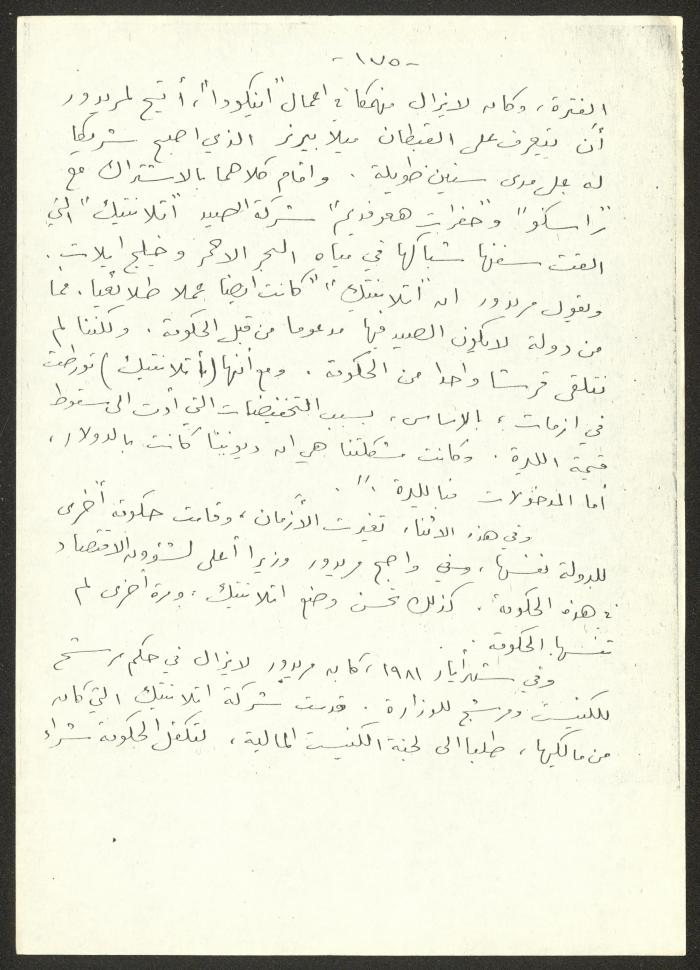 -١٧٥-
الفترة، وكان لا يزال منهمكا في اعمال "اينكودا"، أتيح لمريدور
أن يتعرف على القبطان ميلا بيرنر الذي اصبح شريكا
له على مدى سنين طويلة. واقام كلاهما بالاشتراك مع
"راسكو" و"حفرات هعوفديم" شركة الصيد "اتلانتيك" التي
القت سفنها شباكها في مياه البحر الاحمر وخليج ايلات.
ويقول مريدور ان "اتلانتيك" "كانت أيضا عملا طلائعيا. فما
من دولة لا يكون الصيد فيها مدعوما من قبل الحكومة. ولكننا لم
نتلقى قرشا واحدا من الحكومة. ومع أنها (أتلانتيك) تورطت
في ازمات، بالاساس، بسبب التخفيضات التي أدت الى سقوط
قيمة الليرة. وكانت مشكلتنا هي ان ديوننا كانت بالدولار،
أما المدخولات فبالليرة".
وفي هذه الاثناء تغيرت الأزمان، وقامت حكومة أخرى
للدولة نفسها، واصبح مريدور وزيرا أعلى لشؤون الاقتصاد
في هذه الحكومة. كذلك تحسن وضع اتلانتيك، ومرة أخرى لم
تنسها الحكومة.
وفي شهر أيار ١٩٨١، كان مريدور لا يزال في حكم مرشح
للكنيست ومرشح للوزارة. قدمت شركة اتلانتيك التي كان
من مالكيها، طلبا الى لجنة الكنيست المالية، لتكفل الحكومة شراء